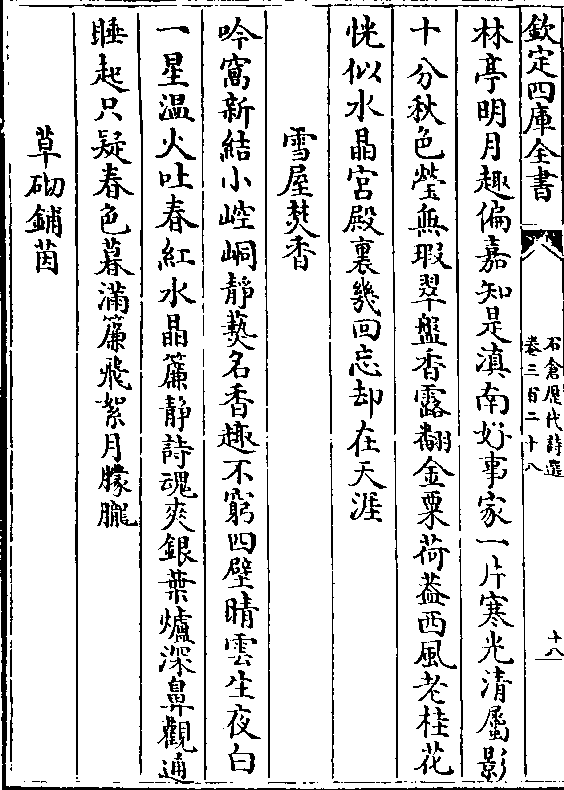 欽定四庫全書
石倉歷代詩選
卷三百二十八
十八
林亭明月趣偏嘉知是滇南好事家一片寒光清屬影
十分秋色瑩無瑕翠盤香露翻金粟荷葢西風老桂花
恍似水晶宮殿裏幾回忘却在天涯
雪屋焚香
吟窩新結小崆峒靜爇名香趣不窮四壁晴雲生夜白
一星温火吐春紅水晶簾靜詩魂爽銀葉爐深鼻觀通
睡起只疑春色暮滿簾飛絮月朦朧
草砌鋪茵